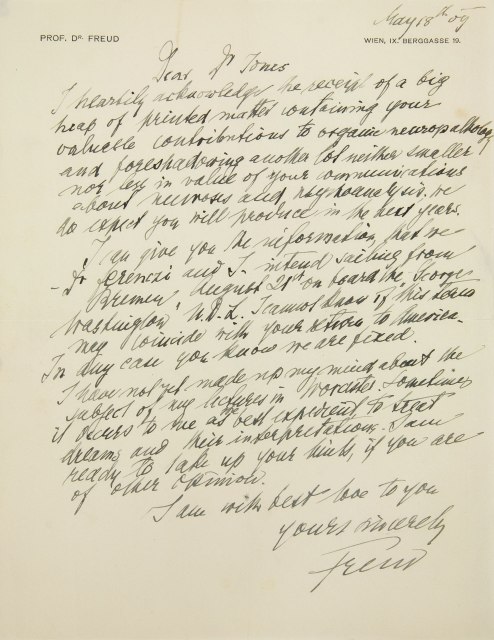 May 18th 09
PROF. DR. FREUD
WIEN, IX. BERGGASSE 19.
Dear Dr Jones
I heartily acknowledge the receipt of a big
heap of printed matter containing your
valuable contributions to organic neuropathology
and foreshadowing another lot neither smaller
nor less in value of your communications
about neuroses and psychoanalysis, we
do expect you will produce in the next years.
I can give you the information, that we
- Dr Ferenczi and I - intend sailing from
Bremen August 21st on board the "George
Washington" N.D.L. I cannot know if this term
may coincide with your return to America.
In any case you know we are fixed.
I have not yet made up my mind about the
subject of my lectures in Worcester. Sometimes
it occurs to me as the best expedient to treat
dreams and their interpretation. I am
ready to take up your hints, if you are
of other opinion.
I am with best love to you
yours sincerely
Freud